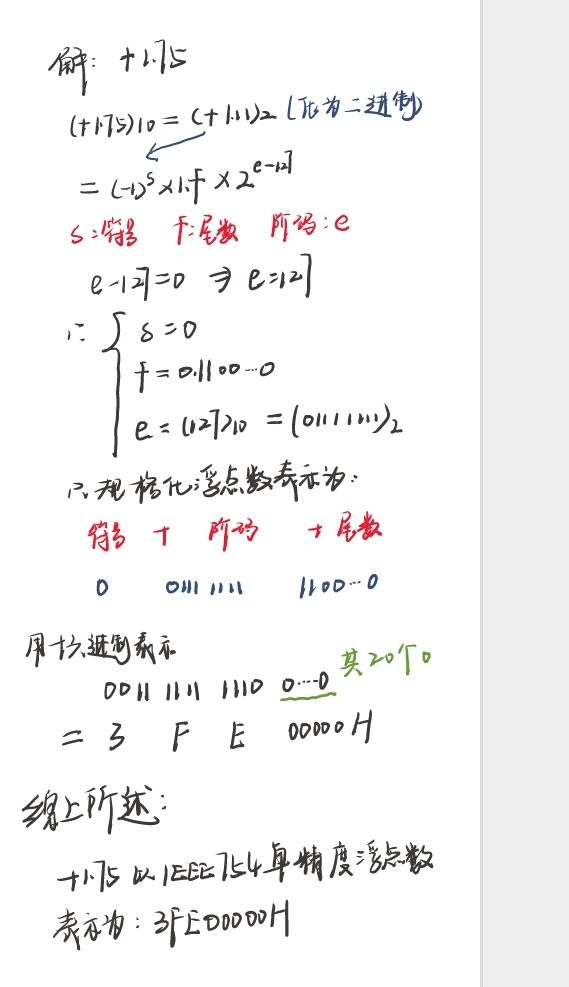 解: +1.75
(+1.75)10 = (+1.11)2 (化为二进制)
= (-1)^s × 1.f × 2^(e-127)
s:符号 f:尾数 阶码:e
e-127=0 ⇒ e=127
∴ { s=0
f=0.1100…0
e=(127)10 = (01111111)2
∴ 规格化浮点数表示为:
符号 + 阶码 + 尾数
0 0111 1111 1100…0
用十六进制表示
0011 1111 1110 0…0 共20个0
= 3 F E 00000H
综上所述:
+1.75 以IEEE754单精度浮点数
表示为: 3FE00000H